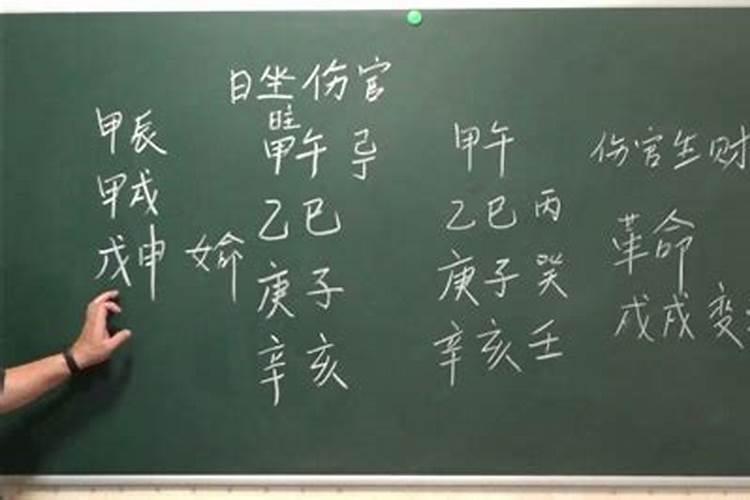 日坐伤官
旺
甲辰
甲戌
戊申
甲午 己丁
乙巳
庚子
辛亥
甲午
乙巳 丙
庚子 癸
辛亥 壬
伤官生财
革命
戊戌变